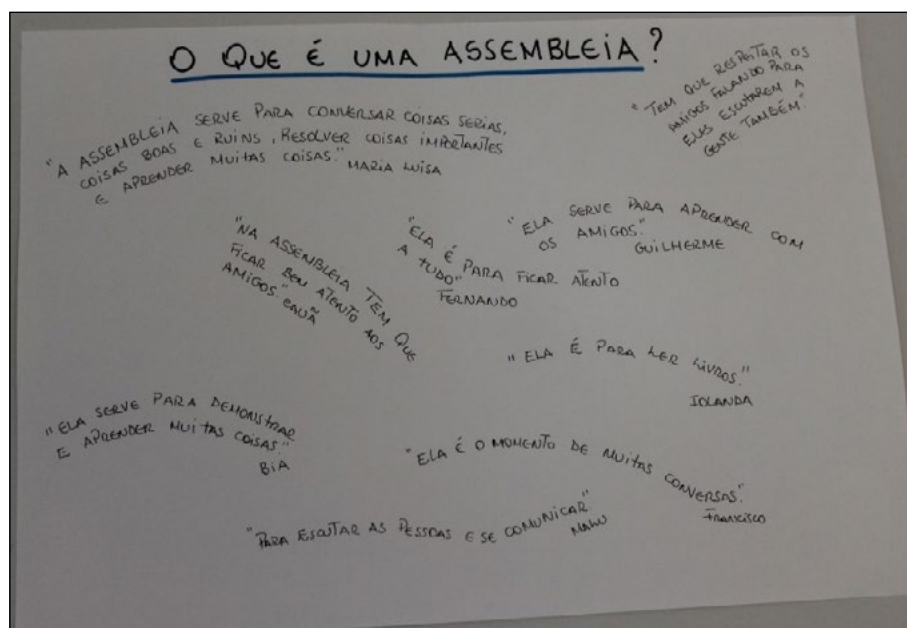 O QUE É UMA ASSEMBLEIA?
"A ASSEMBLEIA SERVE PARA CONVERSAR COISAS SERIAS,
COISAS BOAS E RUINS, RESOLVER COISAS IMPORTANTES
E APRENDER MUITAS COISAS." MARIA LUÍSA
"TEM QUE RESPEITAR OS
AMIGOS FALANDO PARA
ELES ESCUTAREM A
GENTE TAMBÉM."
"NA ASSEMBLEIA TEM QUE
FICAR BEM ATENTO AOS
AMIGOS." CAUÃ
"ELA É PARA FICAR ATENTO
A TUDO"
FERNANDO
"ELA SERVE PARA APRENDER COM
OS AMIGOS."
GUILHERME
"ELA É PARA LER LIVROS."
IOLANDA
"ELA SERVE PARA DEMONSTRAR
E APRENDER MUITAS COISAS."
BIA
"ELA É O MOMENTO DE MUITAS CONVERSAS."
FRANCISCO
"PARA ESCUTAR AS PESSOAS E SE COMUNICAR"
MALU